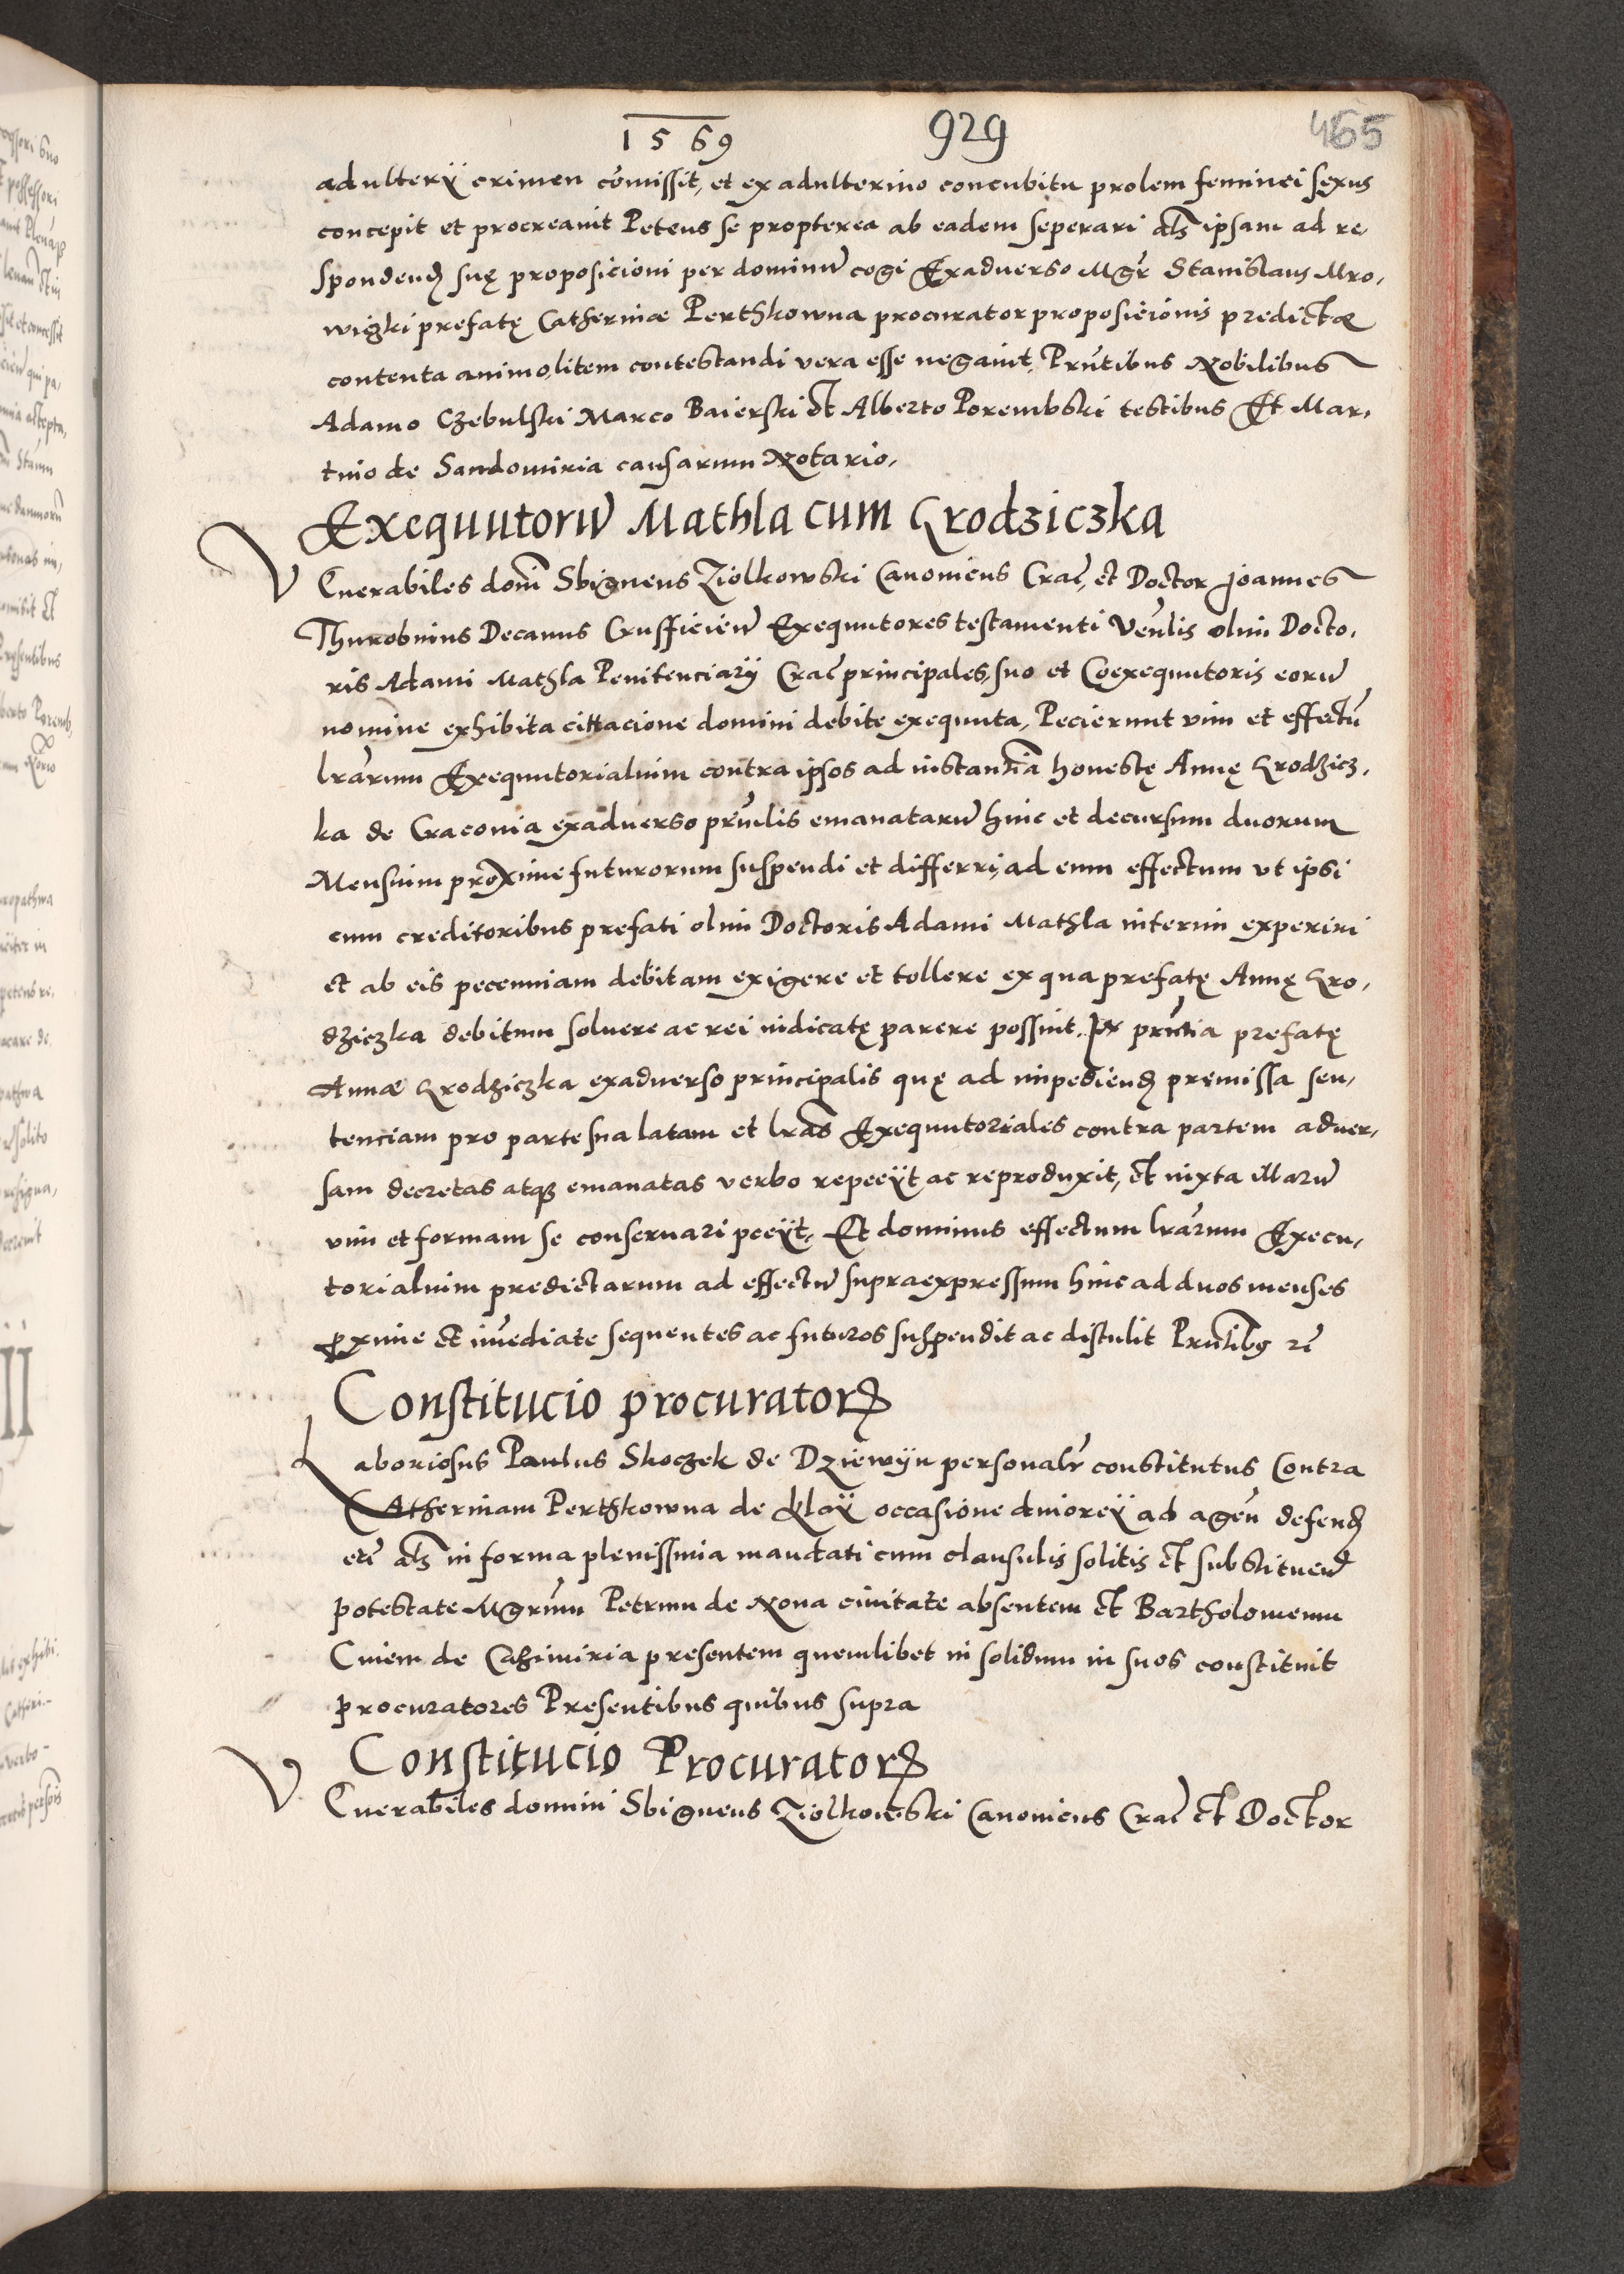 1569 929 465
adulterÿ crimen com̄issit, et ex adulterino concubitu prolem feminei sexus
concepit et procreauit Petens se propterea ab eadem seperari als ipsam ad re,
spondend suę proposicioni per dominū cogi Exaduerso Mgr̄ Stanislaus Mro,
wiȝki prefatę Catherinæ Perthkowna procurator proposicionis predictæ
contenta animo litem contestandi vera esse negauit, Prn̄tibus Nobilibus
Adamo Czebulski Marco Baierski et Alberto Porembski testibus Et Mar,
tino de Sandomiria causarum Notario,
Exequutorū Mathla cum Grodziczka
VEnerabiles domī Sbigneus Ziolkowski Canonicus Crac̄, et Doctor Joannes
Thurobinus Decanus Crusfficień Exequutores testamenti Ven̄lis olim Docto,
ris Adami Mathla Penitenciarÿ Crac̄ principales, suo et Coexequutoris eorū
nomine exhibita cittacione domini debite exequuta, Pecierunt vim et effectū
lrārum Exequutorialium contra ipsos ad instantiā honestę Annę Grodzicz,
ka de Cracouia exaduerso prin̄lis emanatarū hinc et decursum duorum
Mensium proxime futurorum suspendi et differri, ad eum effectum vt ipsi
cum creditoribus prefati olim Doctoris Adami Mathla interim experiri
et ab eis pecenniam debitam exigere et tollere ex qua prefatę Annę Gro,
dziczka debitum soluere ac rei iudicatę parere possint. In prn̄tia prefatę
Annæ Grodziczka exaduerso principalis quę ad impediend premissa sen,
tenciam pro parte sua latam et lrās Exequutoriales contra partem aduer,
sam decretas atq emanatas verbo repecÿt ac reproduxit, et iuxta illarū
vim et formam se conseruari pecÿt, Et dominus effectum lrārum Execu,
torialium predictarum ad effectū supraexpressum hinc ad duos menses
pxime et im̄ediate sequentes ac futuros suspendit ac distulit Prn̄tibg rē
Constitucio procurator
Laboriosus Paulus Skoczek de Dziewÿn personalr̄ constitutus Contra
Catherinam Perthkowna de Klaÿ occasione diuorcÿ ad agen̄ defend
etc̄ als in forma plenissima mandati cum clausulis solitis et substituend
potestate Mgrūm Petrum de Noua ciuitate absentem et Bartholomeum
Ciuem de Cazimiria presentem quemlibet in solidum in suos constituit
procuratores Presentibus quibus supra
Constitucio Procurator
VEnerabiles domini Sbigneus Ziolkowski Canonicus Crac̄ et Doctor